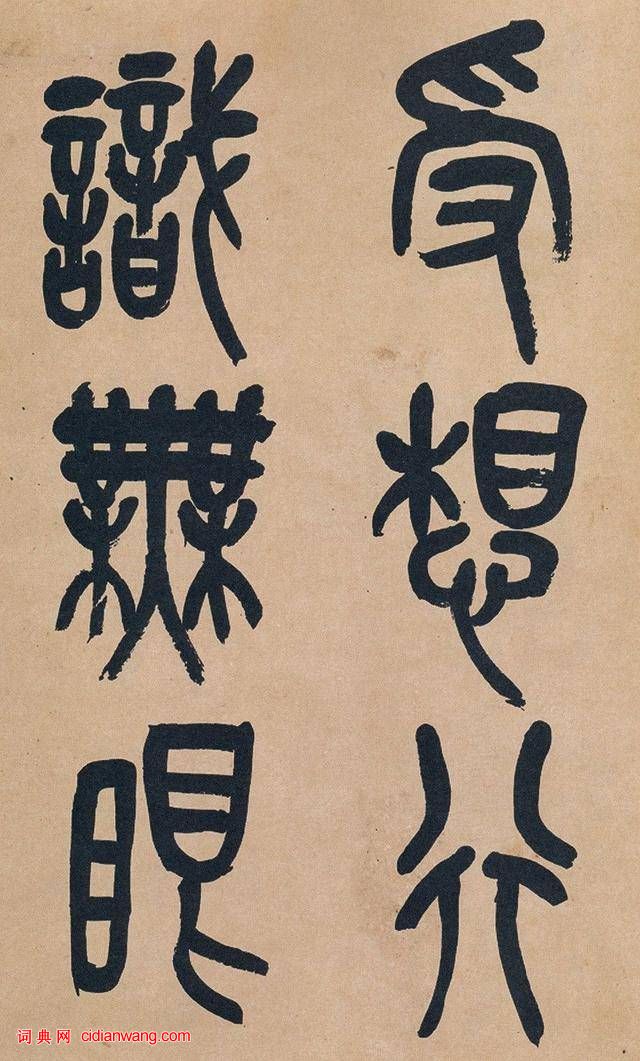 受想行
識無眼
词典网 cidianwang.com